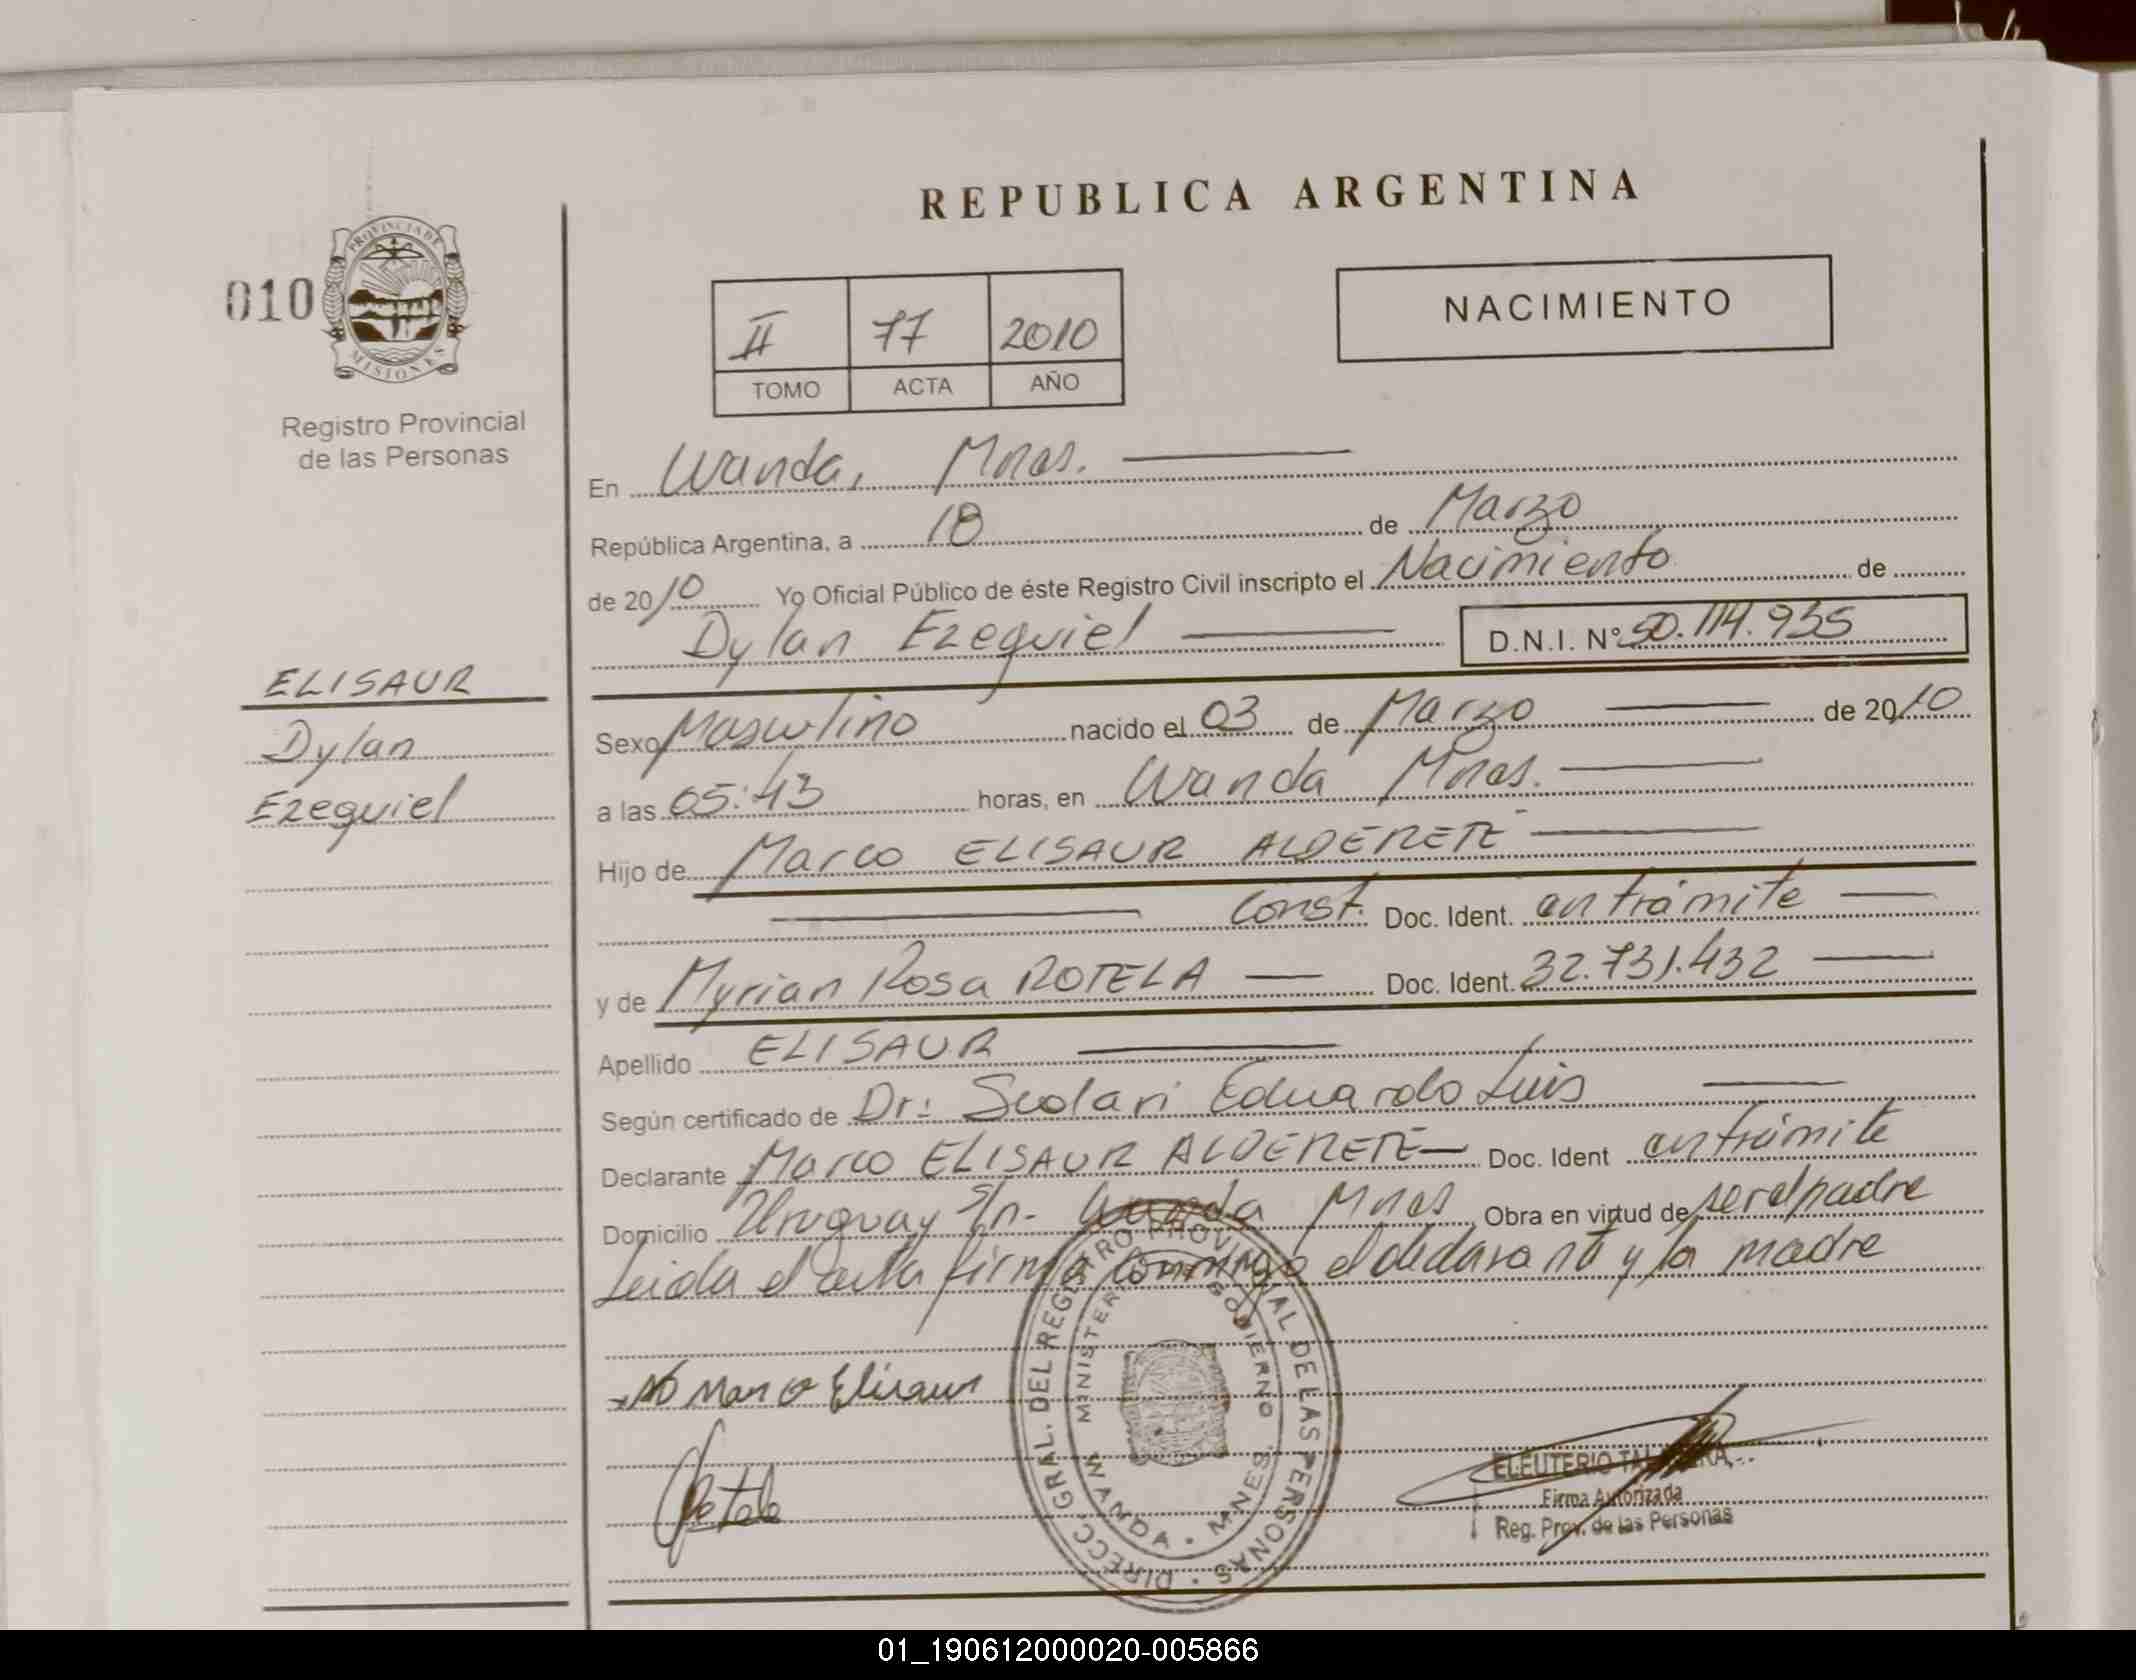 REPUBLICA ARGENTINA
010
PROVINCIA DE
MISIONES
Registro Provincial
de las Personas
II 77 2010
TOMO ACTA AÑO
NACIMIENTO
En Wanda, Mnes.
República Argentina, a 18 de Marzo
de 2010 Yo Oficial Público de éste Registro Civil inscripto el Nacimiento de
Dylan Ezequiel D.N.I. Nº 50.114.935
ELISAUR
Dylan
Ezequiel
Sexo Masculino nacido el 03 de Marzo de 2010
a las 05:43 horas, en Wanda Mnes.
Hijo de Marco ELISAUR ALDERETE
Const. Doc. Ident. en trámite
y de Myrian Rosa ROTELA Doc. Ident. 32.731.432
Apellido ELISAUR
Según certificado de Dr: Scolari Eduardo Luis
Declarante Marco ELISAUR ALDERETE Doc. Ident en trámite
Domicilio Uruguay S/n. Wanda Mnes Obra en virtud de ser el padre
Leida el acta firma conmigo el declarante y la madre
Marco Elisaur
Rotela
DIRECC. GRAL. DEL REGISTRO PROVINCIAL DE LAS PERSONAS
MINISTERIO GOBIERNO
WANDA - MNES.
ELEUTERIO
Firma Autorizada
Reg. Prov. de las Personas
01_190612000020-005866